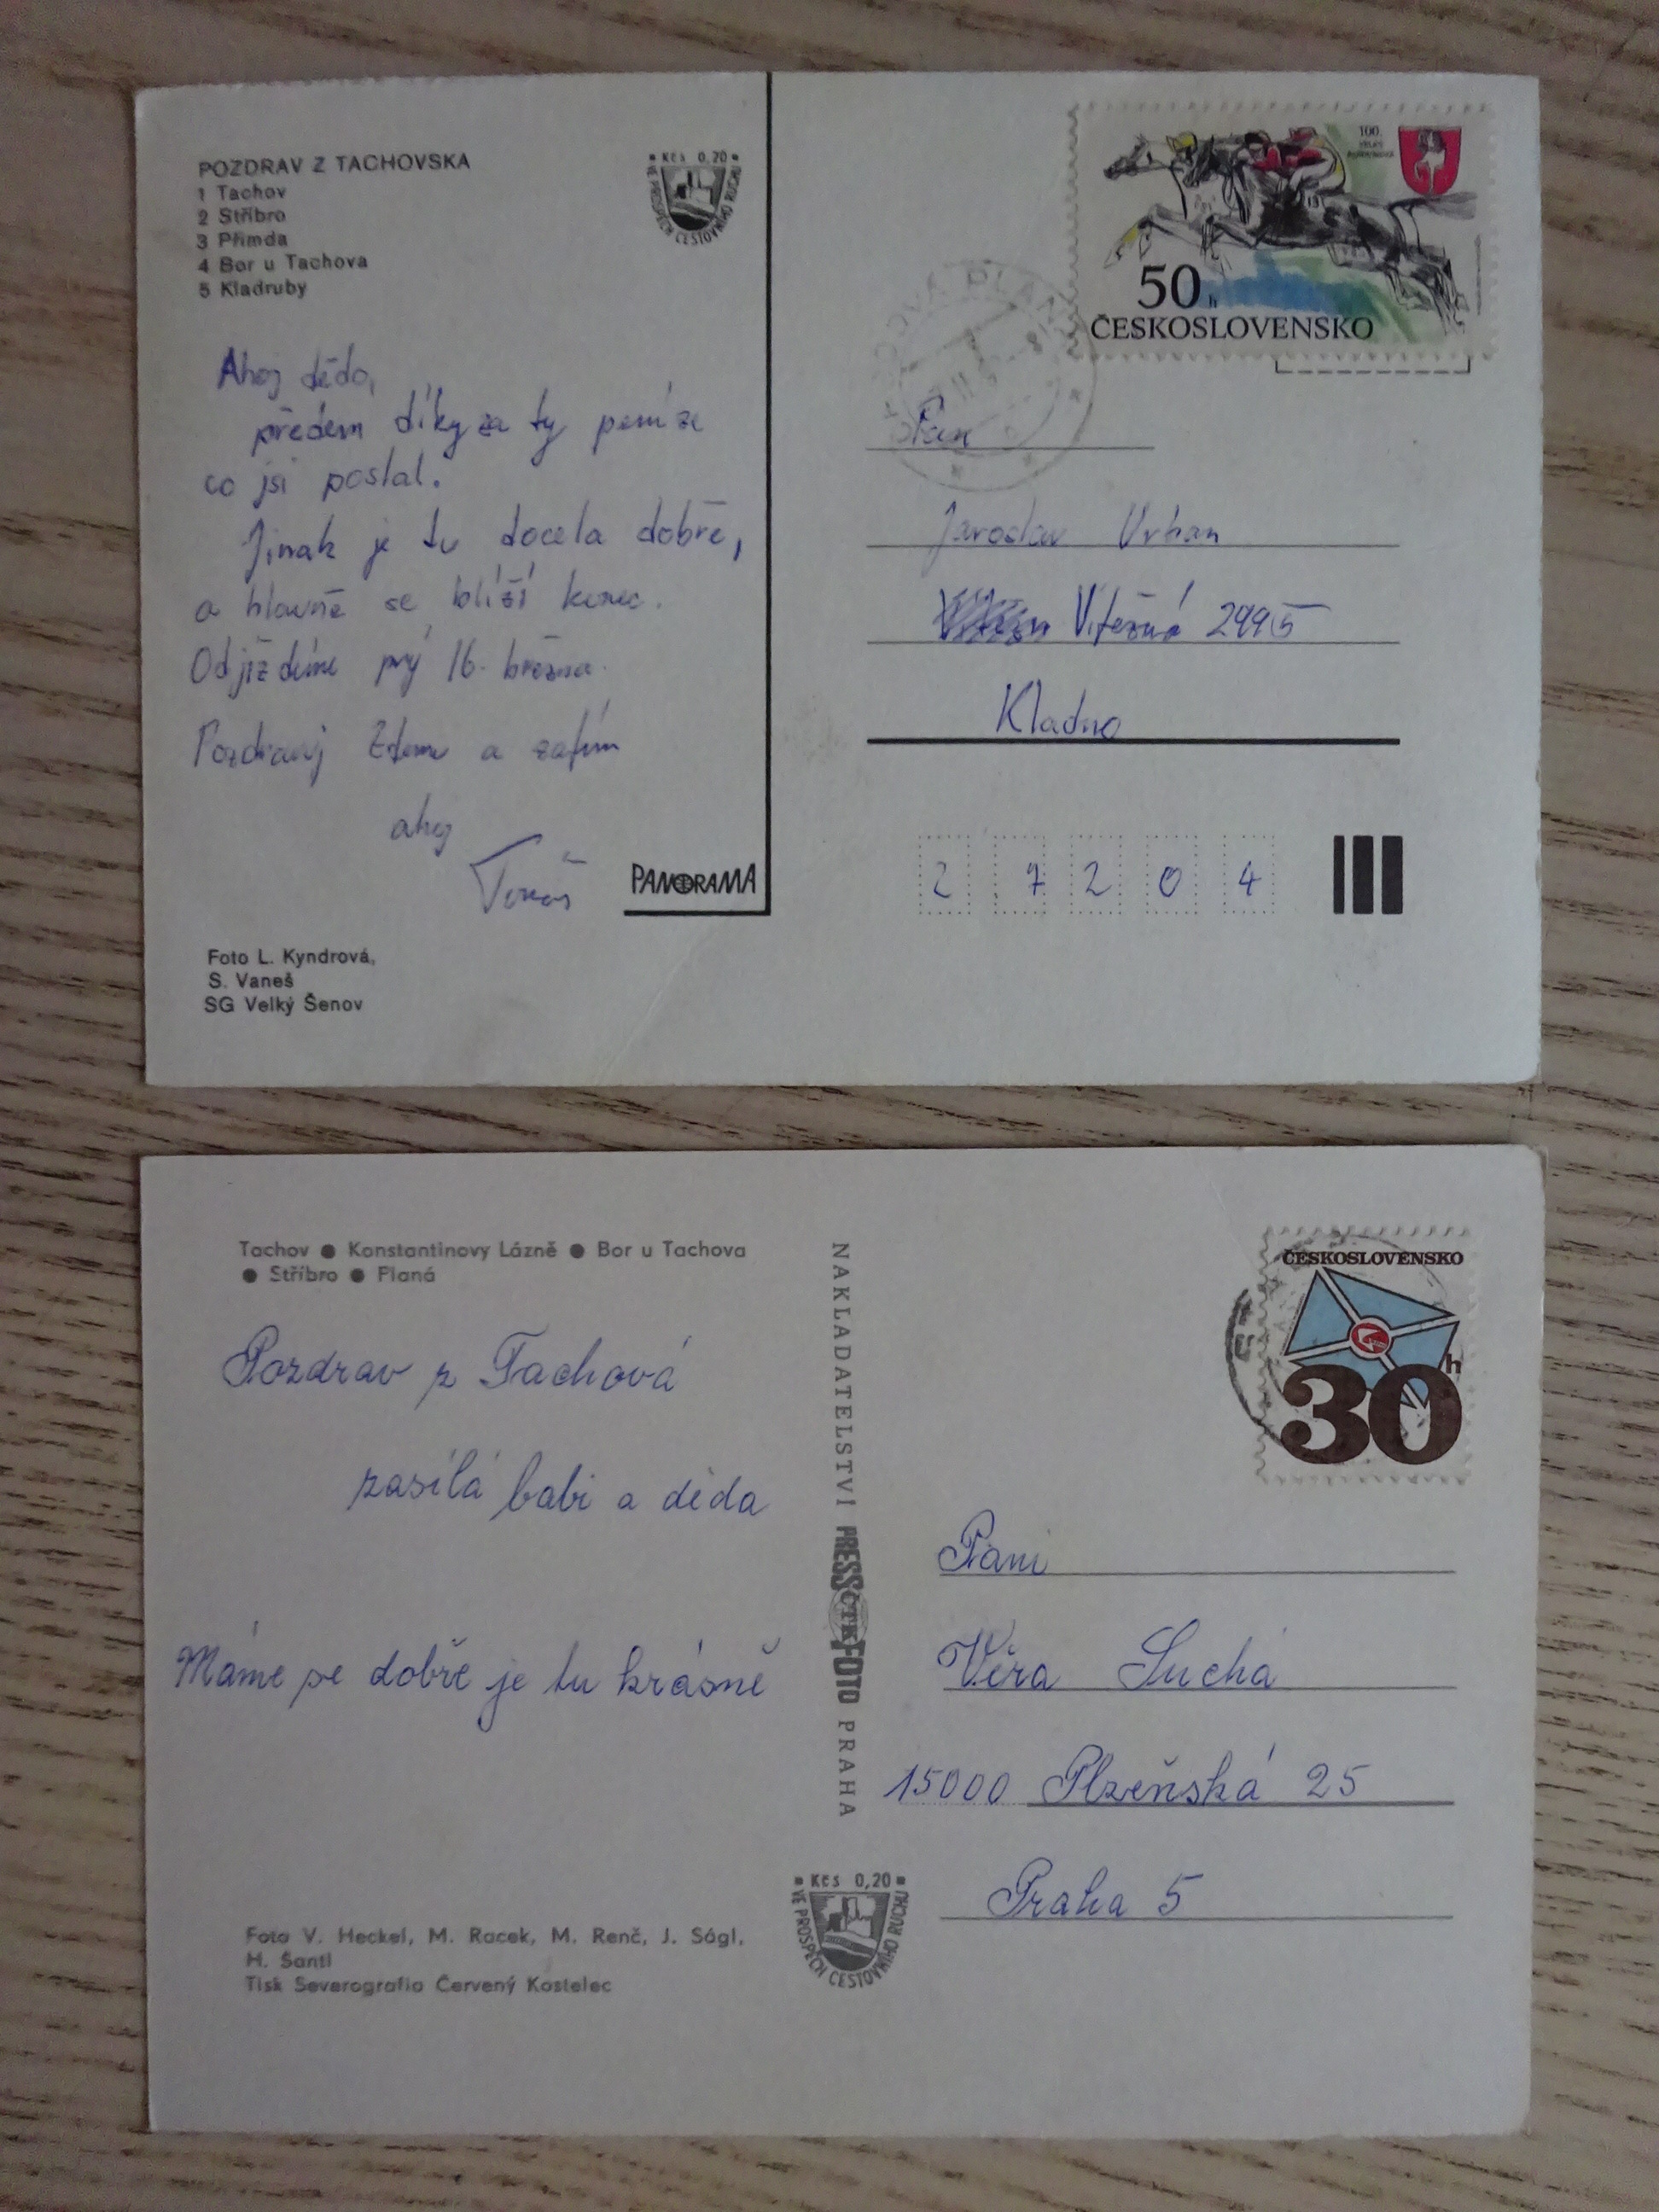 POZDRAV Z TACHOVSKA
1 Tachov
2 Stříbro
3 Přimda
4 Bor u Tachova
5 Kladruby
Kčs 0,20
VE PROSPĚCH CESTOVNÍHO RUCHU
Ahoj dědo,
předem díky za ty peníze
co jsi poslal.
Jinak je tu docela dobře,
a hlavně se blíží konec.
Odjíždíme prý 16. března.
Pozdravuj a zatím
ahoj
Tomáš
PANORAMA
Foto L. Kyndrová,
S. Vaneš
SG Velký Šenov
100.
VELKÁ
PARDUBICKÁ
50 h
ČESKOSLOVENSKO
Pan
Jaroslav Urban
Vítězná 2995
Kladno
2 7 2 0 4
Tachov ● Konstantinovy Lázně ● Bor u Tachova
● Stříbro ● Planá
Pozdrav z Tachová
zasílá babi a děda
Máme se dobře je tu krásně
Foto V. Heckel, M. Racek, M. Renč, J. Ságl,
H. Šantl
Tisk Severografia Červený Kostelec
NAKLADATELSTVÍ PRESSFOTO PRAHA
ČTK
Kčs 0,20
VE PROSPĚCH CESTOVNÍHO RUCHU
ČESKOSLOVENSKO
30 h
Paní
Věra Suchá
15000 Plzeňská 25
Praha 5